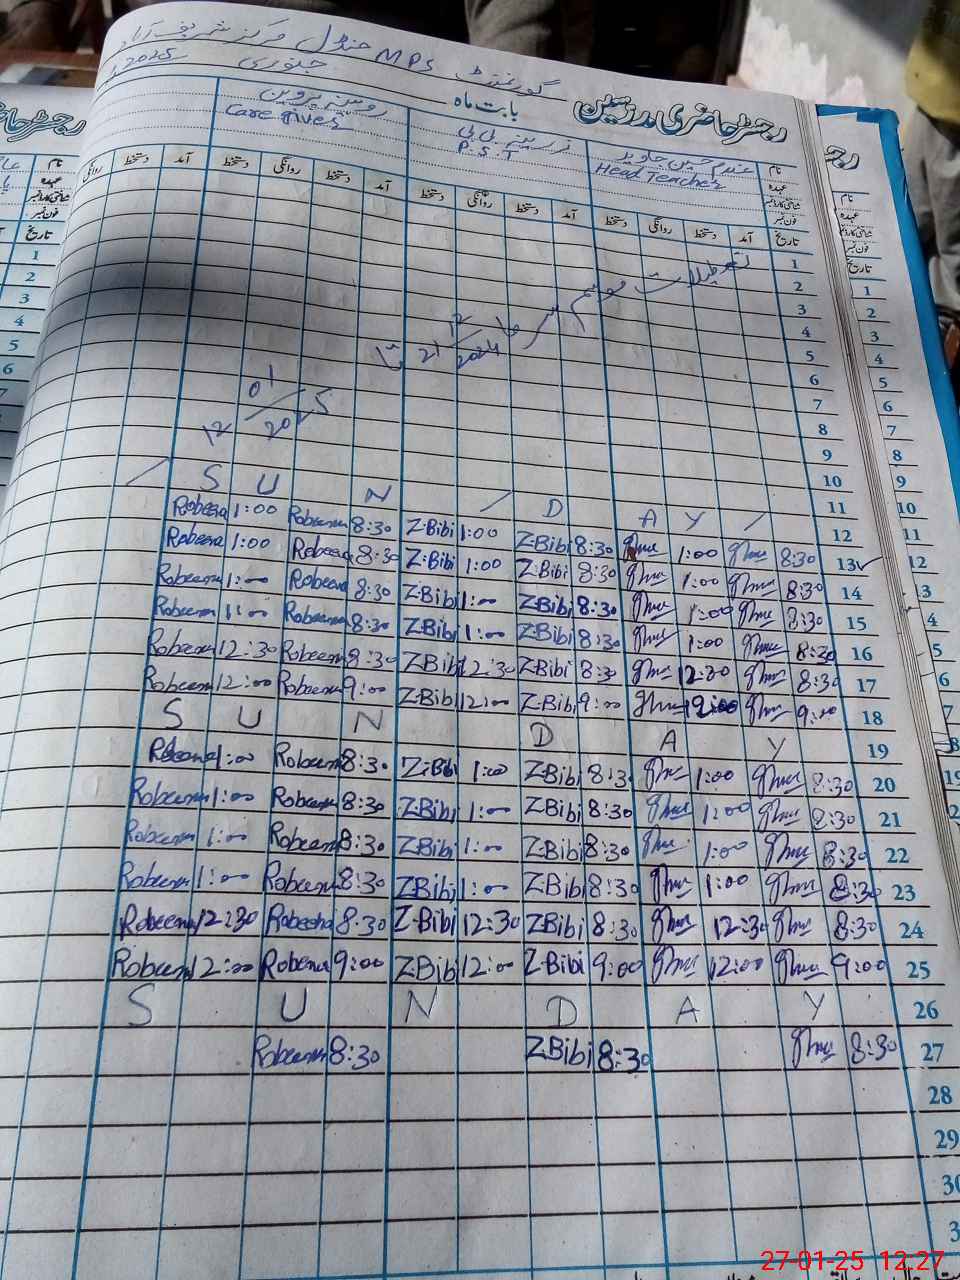 گورنمنٹ MPS جنڈل مرکز شریف آباد
رجسٹر حاضری مدرسین بابت ماہ جنوری 2025
نام غلام حسین جاوید زرینہ بی بی روبینہ پروین
عہدہ Head Teacher P.S.T Care Giver
شناختی کارڈ نمبر
فون نمبر
تاریخ آمد دستخط روانگی دستخط آمد دستخط روانگی دستخط آمد دستخط روانگی دستخط آمد دستخط روانگی
1
2
3
4
5
6
7
8
9
10
11
تعطیلات موسم سرما 21/12/2024 تا
12/01/2025
S U N D A Y 12
Robeena 1:00 Robeena 8:30 Z.Bibi 1:00 Z.Bibi 8:30 1:00 8:30 13
Robeena 1:00 Robeena 8:30 Z.Bibi 1:00 Z.Bibi 8:30 1:00 8:30 14
Robeena 1:00 Robeena 8:30 Z.Bibi 1:00 Z.Bibi 8:30 1:00 8:30 15
Robeena 1:00 Robeena 8:30 Z.Bibi 1:00 Z.Bibi 8:30 1:00 8:30 16
Robeena 12:30 Robeena 8:30 Z.Bibi 12:30 Z.Bibi 8:30 12:30 8:30 17
Robeena 12:00 Robeena 9:00 Z.Bibi 12:00 Z.Bibi 9:00 12:00 9:00 18
S U N D A Y 19
Robeena 1:00 Robeena 8:30 Z.Bibi 1:00 Z.Bibi 8:30 1:00 8:30 20
Robeena 1:00 Robeena 8:30 Z.Bibi 1:00 Z.Bibi 8:30 1:00 8:30 21
Robeena 1:00 Robeena 8:30 Z.Bibi 1:00 Z.Bibi 8:30 1:00 8:30 22
Robeena 1:00 Robeena 8:30 Z.Bibi 1:00 Z.Bibi 8:30 1:00 8:30 23
Robeena 12:30 Robeena 8:30 Z.Bibi 12:30 Z.Bibi 8:30 12:30 8:30 24
Robeena 12:00 Robeena 9:00 Z.Bibi 12:00 Z.Bibi 9:00 12:00 9:00 25
S U N D A Y 26
Robeena 8:30 Z.Bibi 8:30 8:30 27
28
29
30
27-01-25 12:27